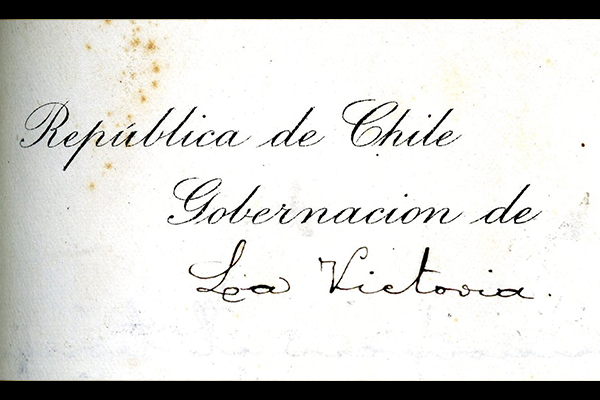 República de Chile
Gobernacion de
La Victoria.